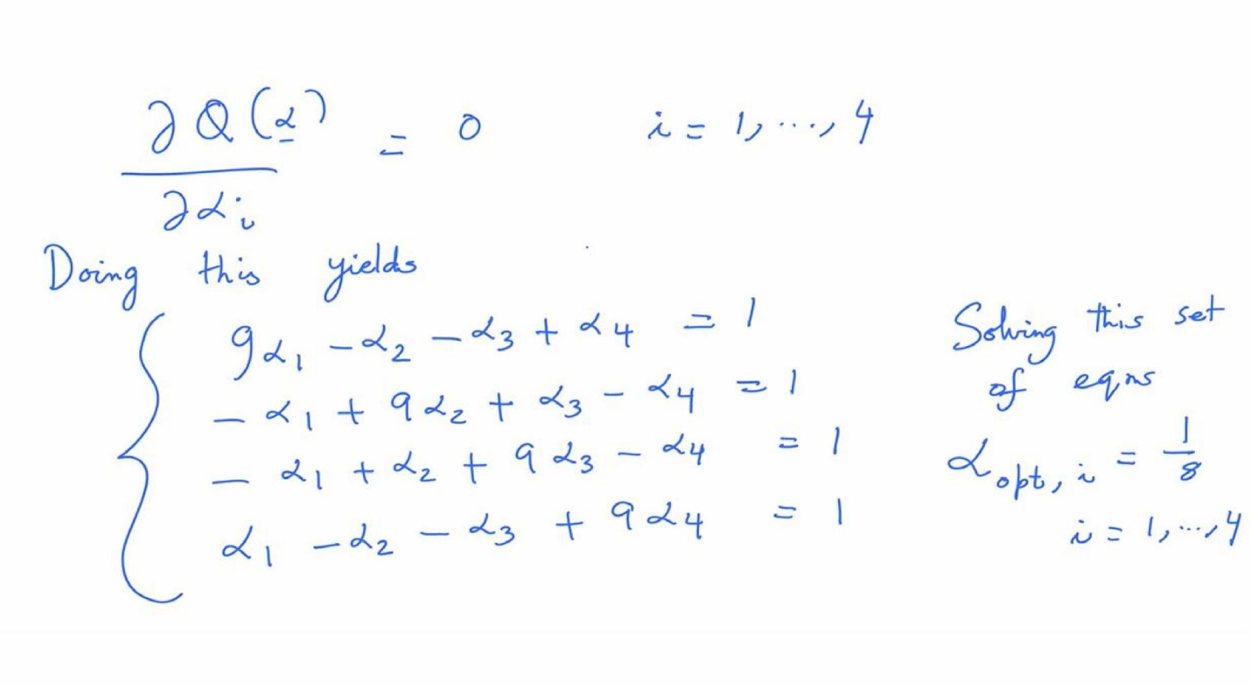 ∂Q(α)/∂αᵢ = 0 i = 1, ..., 4
Doing this yields
9α₁ - α₂ - α₃ + α₄ = 1
- α₁ + 9α₂ + α₃ - α₄ = 1
- α₁ + α₂ + 9α₃ - α₄ = 1
α₁ - α₂ - α₃ + 9α₄ = 1
Solving this set
of eqns
α_opt, i = 1/8
i = 1, ..., 4